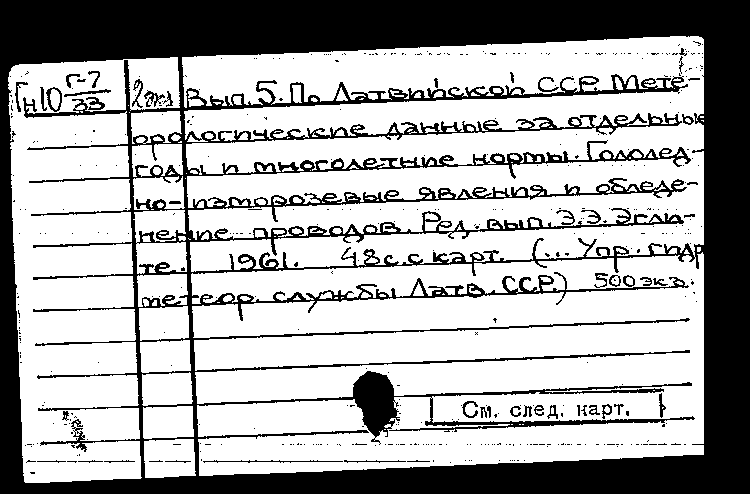 Гн10 Г-7/33 2 экз Вып. 5. По Латвийской ССР. Мете-
орологические данные за отдельные
годы и многолетние нормы. Гололед-
но-изморозевые явления и обледе-
нение проводов. Ред. вып. Э.Э. Эгли-
те. 1961. 48 с. с карт. (... Упр. гидр
метеор. службы Латв. ССР.) 500 экз.
См. след. карт.